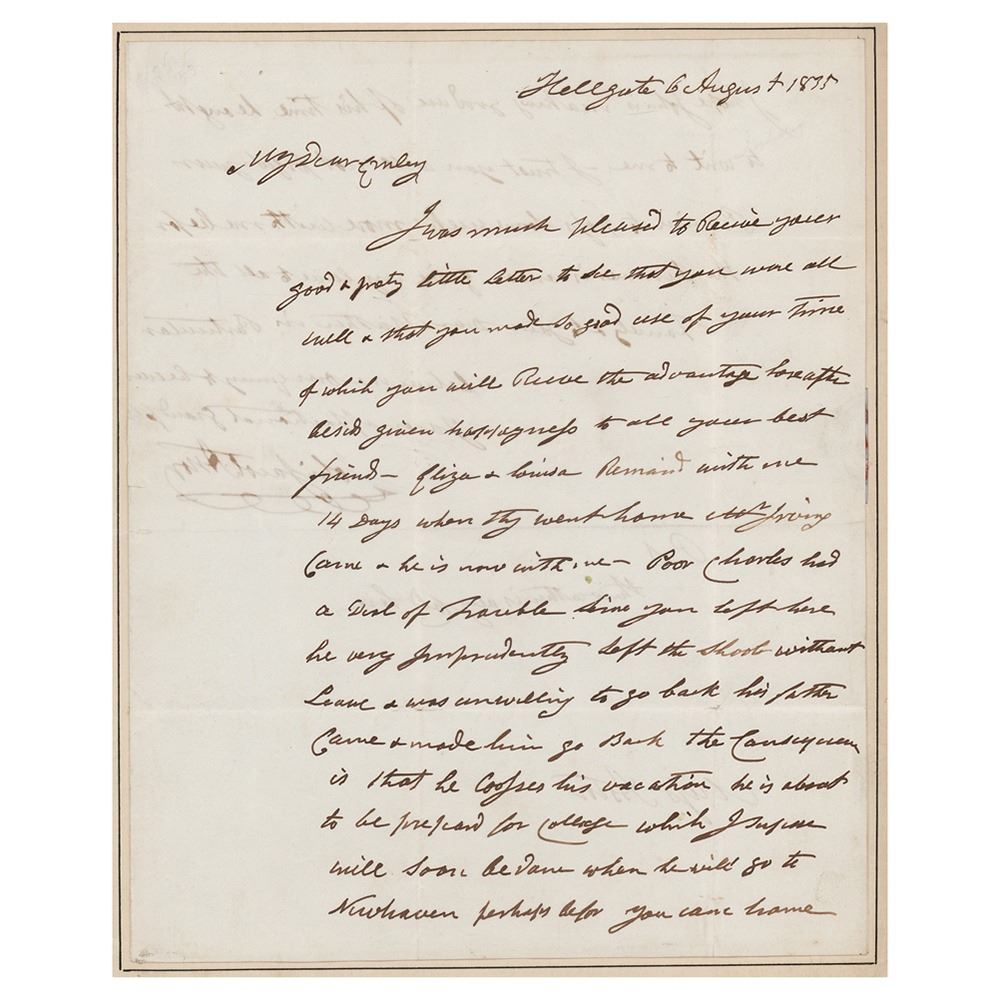 Hellgate 6 August 1835
My Dear Emley
I was much pleased to Receive your
good & prety little letter to see that you were all
well & that you made so good use of your time
of which you will Receve the advantage hereafter
besids given happyness to all your best
friend – Eliza & Louisa Remaind with me
14 Days when thy went home Mr Irving
Came & he is now with me – Poor Charles had
a Deal of Trouble sins you left here
he very Imprudently left the Shool without
Leave & was unwilling to go back his father
Came & made him go Back the Consequence
is that he Loosses his vacation he is about
to be prepard for College which I supose
will soon be done when he will go to
Newhaven perhaps befor you came home